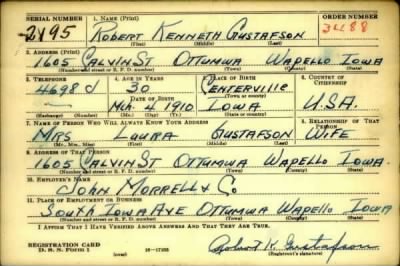 SERIAL NUMBER 1. NAME (Print) ORDER NUMBER
2195 ROBERT KENNETH GUSTAFSON 3488
(First) (Middle) (Last)
2. ADDRESS (Print)
1605 CALVIN ST OTTUMWA WAPELLO IOWA
(Number and street or R. F. D. number) (Town) (County) (State)
3. TELEPHONE 4. AGE IN YEARS 5. PLACE OF BIRTH 6. COUNTRY OF CITIZENSHIP
4698 J 30 CENTERVILLE
DATE OF BIRTH (Town or county)
4 1910 IOWA U.S.A.
(Exchange) (Number) (Mo.) (Day) (Yr.) (State or country)
7. NAME OF PERSON WHO WILL ALWAYS KNOW YOUR ADDRESS 8. RELATIONSHIP OF THAT PERSON
MRS LAURA GUSTAFSON WIFE
(Mr., Mrs., Miss) (First) (Middle) (Last)
9. ADDRESS OF THAT PERSON
1605 CALVIN ST OTTUMWA WAPELLO IOWA.
(Number and street or R. F. D. number) (Town) (County) (State)
10. EMPLOYER'S NAME
JOHN MORRELL & CO
11. PLACE OF EMPLOYMENT OR BUSINESS
SOUTH IOWA AVE OTTUMWA WAPELLO IOWA
(Number and street or R. F. D. number) (Town) (County) (State)
I AFFIRM THAT I HAVE VERIFIED ABOVE ANSWERS AND THAT THEY ARE TRUE.
REGISTRATION CARD
D. S. S. Form 1 16-17105 Robert K. Gustafson
(Registrant's signature)